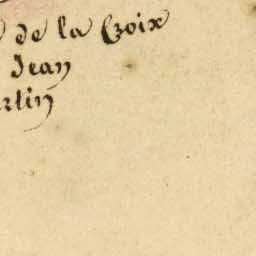 de la Croix
Jean
rtin